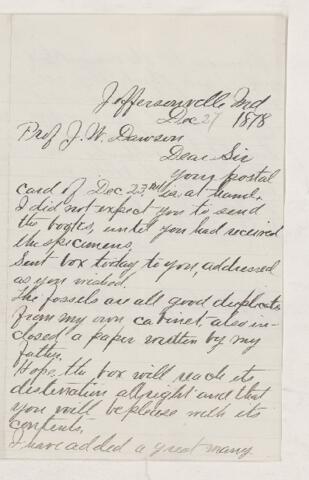 Jeffersonville Ind
Dec 27 1878
Prof J. W. Dawson
Dear Sir
Your postal
card of Dec 23rd is at hand.
I did not expect you to send
the books, until you had received
the specimens.
Sent box today to you, addressed
as you wished.
The fossels are all good duplicates
from my own cabinet, also in-
closed a paper written by my
father.
Hope the box will reach its
distination allright and that
you will be please with its
contents.
I have added a great many